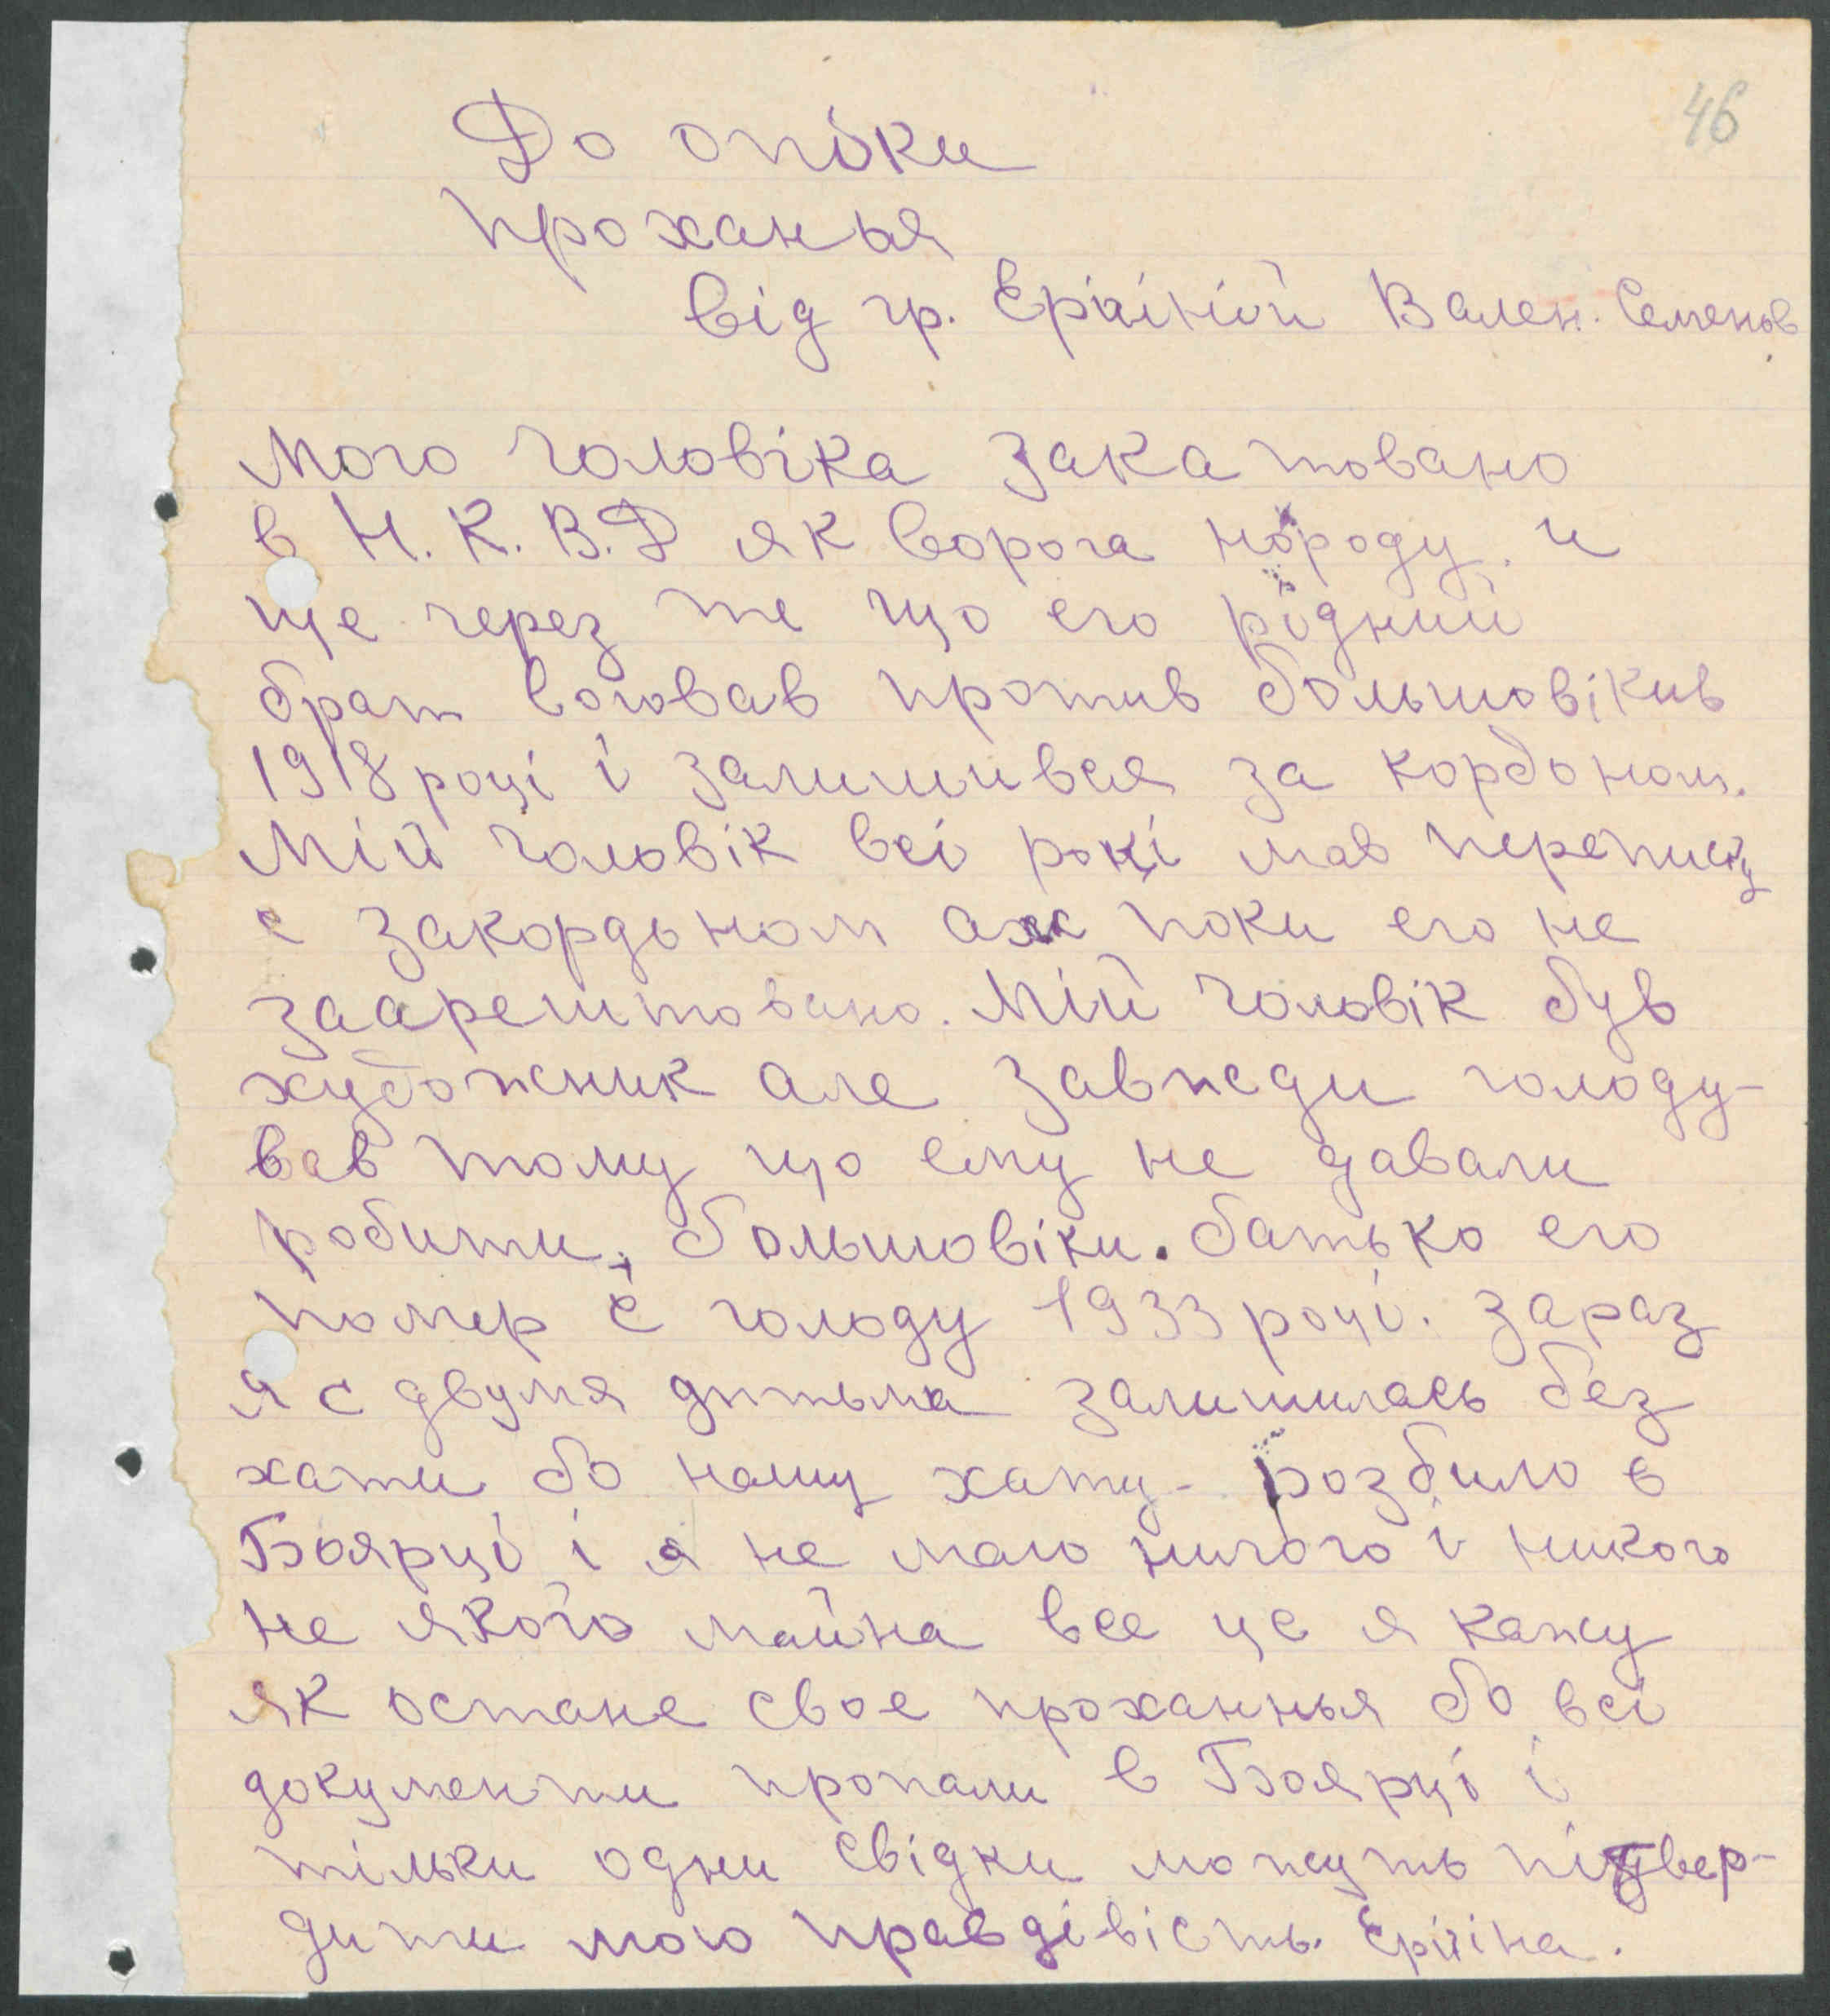 46
До опіки
Проханья
від гр. Ерііній Вален. Семенов
Мого чоловіка закатовано
в Н. К. В. Д як ворога народу. и
ще через те що его рідний
брат воював против большовіків
1918 році і залишився за кордоном.
Мій чоловік всі рокі мав переписку
с закордоном аж поки его не
заарештовано. Мій чоловік був
художник але завжди голоду-
вав тому що ему не давали
робити, большовіки. батько его
помер с голоду 1933 році. зараз
я с двумя дитьма залишилась без
хати бо нашу хату - розбило в
Боярці і я не маю ничого і никого
не якого майна все це я кажу
як остане свое проханнья бо всі
документи пропали в Боярці і
тільки одни свідки можуть підтвер-
дити мою правдівість.